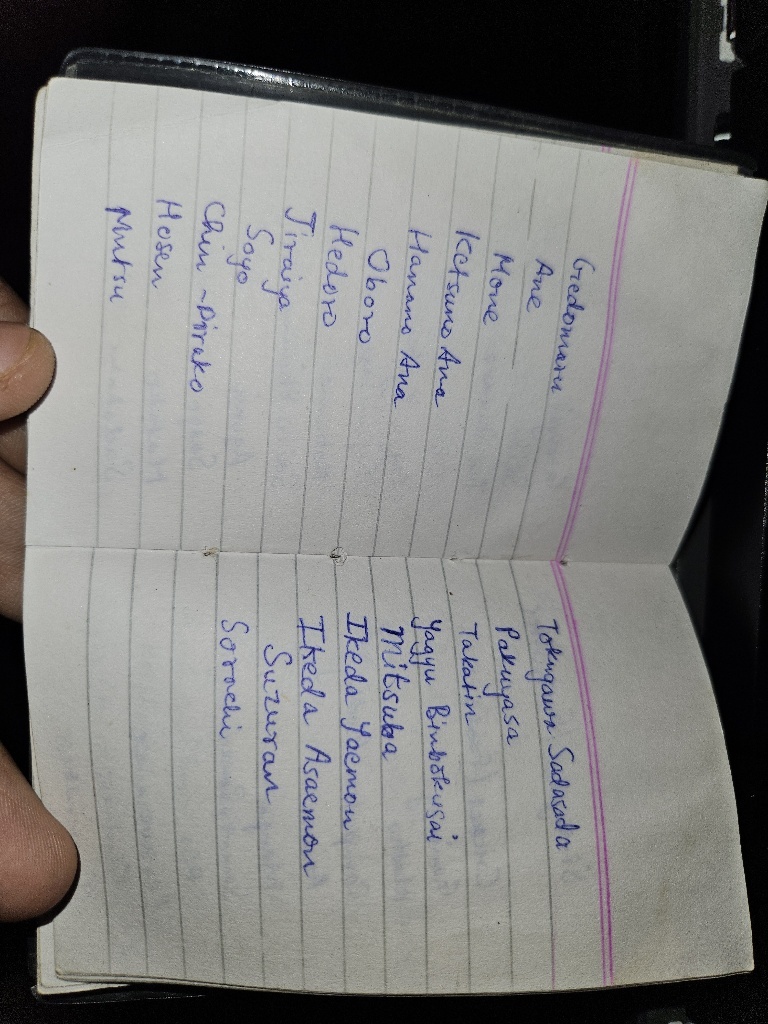 Gedomaru
Ane
Mone
Ketsuno Ana
Hanano Ana
Oboro
Hedoro
Jiraiya
Soyo
Chin-Pirako
Hosen
Mutsu
Tokugawa Sadasada
Pakuyasa
Takatin
Yagyu Binbokusai
Mitsuba
Ikeda Yaemon
Ikeda Asaemon
Suzuran
Sorachi